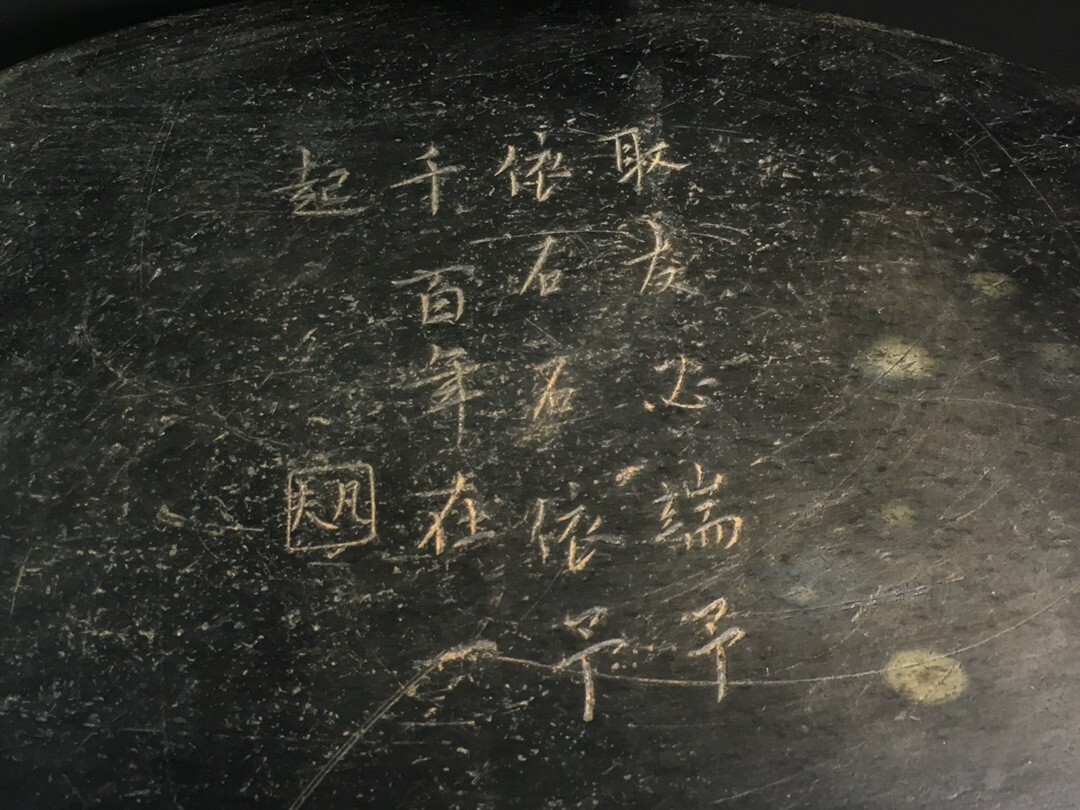 取友必端予
依石石依予
千百年在
起
凡